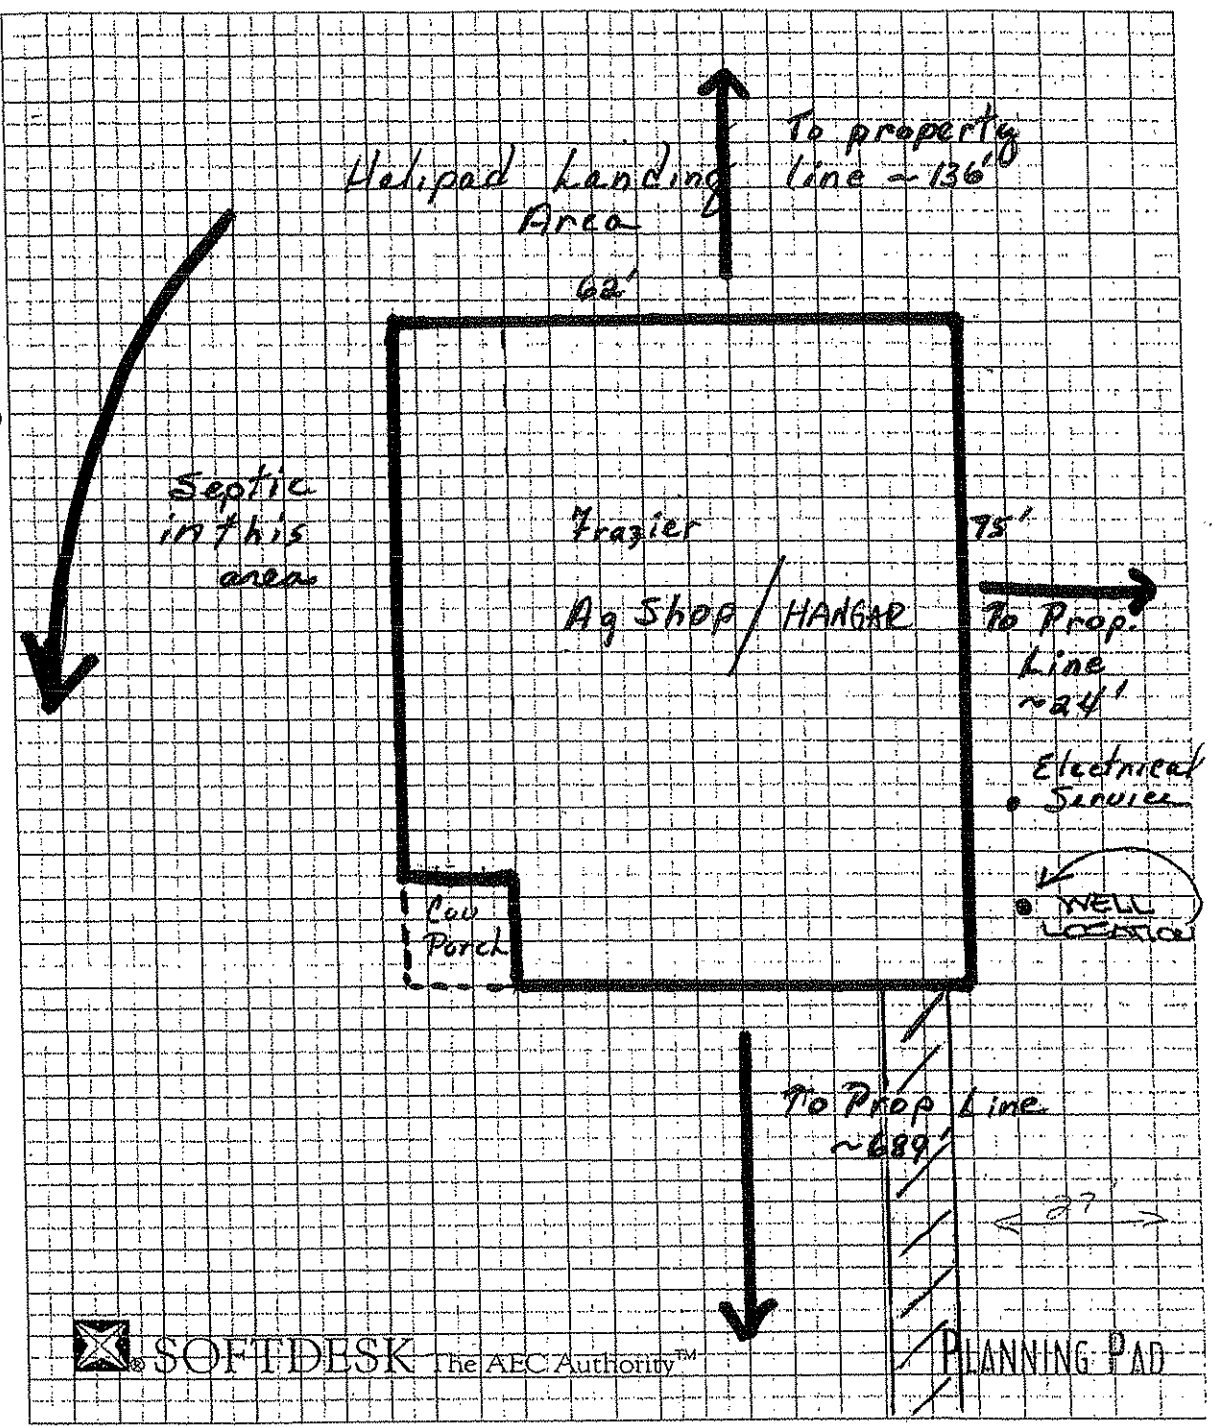 To property
line ~ 136'
Helipad Landing
Area
62'
Septic
in this
area
Frazier
Ag Shop / HANGAR
75'
To Prop.
Line
~24'
Electrical
Service
WELL
LOCATION
Cov
Porch
To Prop Line
~689'
27'
® SOFTDESK The AEC Authority™
PLANNING PAD